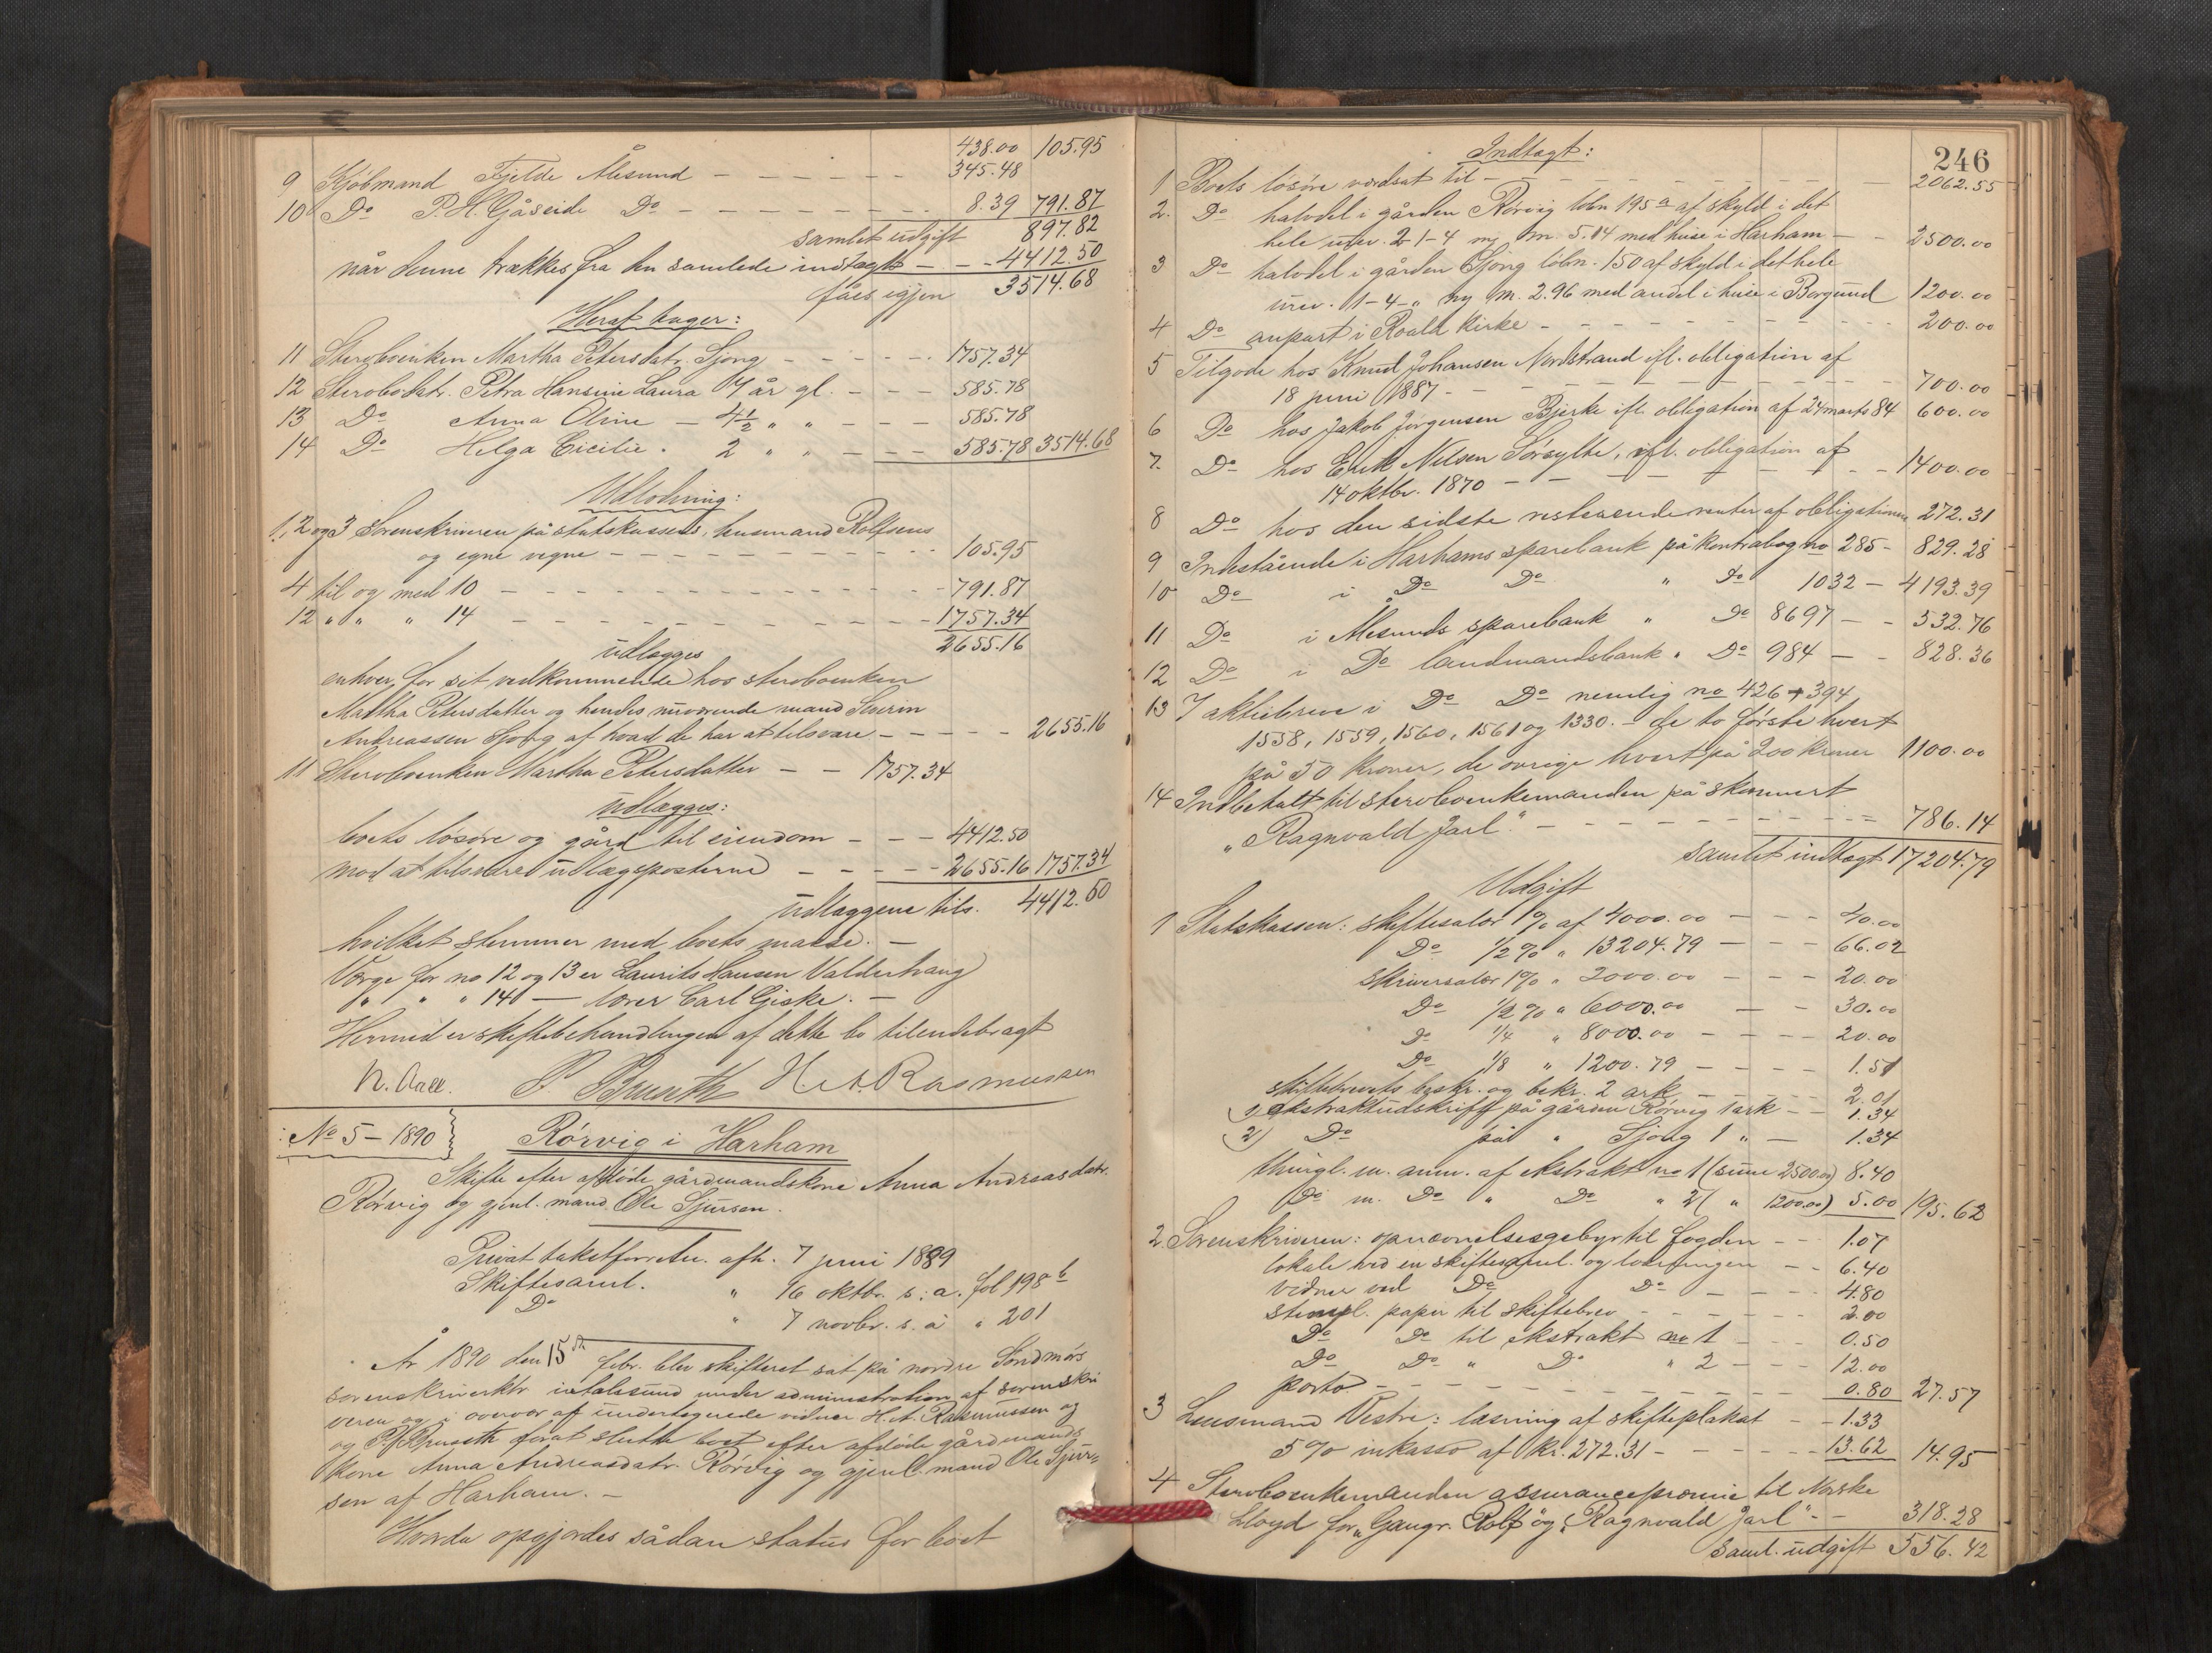 438.00 105.95
9 Kjøbmand Fjelde Ålesund — 345.48
10 Do P. H. Gåseide Do — 8.39 791.87
samlet udgift 897.82
når denne trækkes fra den samlede indtægt — 4412.50
fåes igjen 3514.68
Heraf tager:
11 Sterboenken Martha Petersdatr. Sjong — 1757.34
12 Sterbodatr. Petra Hansine Laura 7 år gl. — 585.78
13 Do Anna Oline — 4½ " " — 585.78
14 Do Helga Cicilie . 2 " " — 585.78 3514.68
Udlodning:
1, 2 og 3 Sorenskriveren på statskassens, husmand Rolfsens
og egne vegne — 105.95
4 til og med 10 — 791.87
12 " " " 14 — 1757.34
2655.16
udlægges
enhver for sit vedkommende hos sterboenken
Martha Petersdatter og hendes nuværende mand Severin
Andreassen Sjong af hvad de har at tilsvare — 2655.16
11 Sterboenken Martha Petersdatter — 1757.34
udlægges:
boets løsøre og gård til eiendom — 4412.50
mod at tilsvare udlægsposterne — 2655.16 1757.34
udlæggene tils. 4412.50
hvilket stemmer med boets masse. —
Værge for no 12 og 13 er Laurits Hansen Valderhaug
" " " 14 — lærer Carl Giske. —
Hermed er skiftebehandlingen af dette bo tilendebragt
N. Aall. P. Brunth H. A. Rasmussen
No 5 – 1890 Rørvig i Harham
Skifte efter afdøde gårdmandskone Anna Andreasdatr.
Rørvig og gjenl. mand Ole Sjursen.
Privat takstforretn. afh. 7 juni 1889
Skiftesaml. " 16 oktbr. s. a. fol 198 b
Do " 7 novbr. s. a " 201
År 1890 den 15de febr. blev skifteret sat på nordre Søndmørs
sorenskriverktr i Aalesund under administration af sorenskri
veren og i overvær af undertegnede vidner H. A. Rasmussen og
og P. Brunth forat slutte boet efter afdøde gårdmands
kone Anna Andreasdatr. Rørvig og gjenl. mand Ole Sjur-
sen af Harham. —
Hvorda opgjordes sådan status for boet
246
Indtægt:
1 Boets løsøre værdsat til — 2062.55
2. Do halvdel i gården Rørvig løbn 195 a af skyld i det
hele urev. 2-1-4 ny m. 5.14 med huse i Harham — 2500.00
3 Do halvdel i gården Sjong løbn. 150 af skyld i det hele
urev. 1-4-" ny m. 2.96 med andel i huse i Borgund 1200.00
4 Do anpart i Roald kirke — 200.00
5 Tilgode hos Knud Johansen Nordstrand ifl. obligation af
18 juni 1887 — 700.00
6 Do hos Jakob Jørgensen Bjerke ifl. obligation af 24 marts 84 600.00
7. Do hos Erik Nilsen Sørsylte, ifl. obligation af
14 oktbr. 1870 — 1400.00
8 Do hos den sidste resterende renter af obligationen 272.31
9 Indestående i Harhams sparebank på kontrabog no 285 — 829.28
10 Do i Do Do " do 1032 — 4193.39
11 Do i Ålesunds sparebank " Do 8697 — 532.76
12 Do i Do landmandsbank " Do 984 — 828.36
13 7 aktiebreve i Do Do nemlig no 426 + 394,
1558, 1559, 1560, 1561 og 1330. — de to første hvert
på 50 kroner, de øvrige hvert på 200 kroner 1100.00
14 Indbetalt til sterboenkemanden på skonnert
"Ragnvald Jarl" — 786.14
samlet indtægt 17204.79
Udgift
1 Statskassen: skiftesalær 1 % af 4000.00 — 40.00
Do ½ % " 13204.79 — 66.02
skriversalær 1 % " 2000.00 — 20.00
Do ½ % " 6000.00 — 30.00
Do ¼ " 8000.00 — 20.00
Do 1/8 " 1200.79 — 1.51
skiftebrevets beskr. og bekr. 2 ark — 2.01
1) ekstraktudskrift på gården Rørvig 1 ark — 1.34
2) Do på " Sjong 1 " — 1.34
thingl. m. anm. af ekstrakt no 1 (sum 2500.00) 8.40
Do m. Do " Do " 2 ( " 1200.00) 5.00 195.62
2. Sorenskriveren: opnævnelsesgebyr til fogden — 1.07
lokale ved en skiftesaml. og lodningen — 6.40
vidner ved Do Do — 4.80
stempl. papir til skiftebrev — 2.00
Do Do til ekstrakt no 1 — 0.50
Do Do " Do " 2 — 12.00
porto — 0.80 27.57
3 Lensmand Vestre: læsning af skifteplakat — 1.33
5 % inkasso af kr. 272.31 — 13.62 14.95
4 Sterboenkemanden assurancepræmie til Norske
Lloyd for "Gangr. Rolf" og "Ragnvald Jarl" — 318.28
saml. udgift 556.42